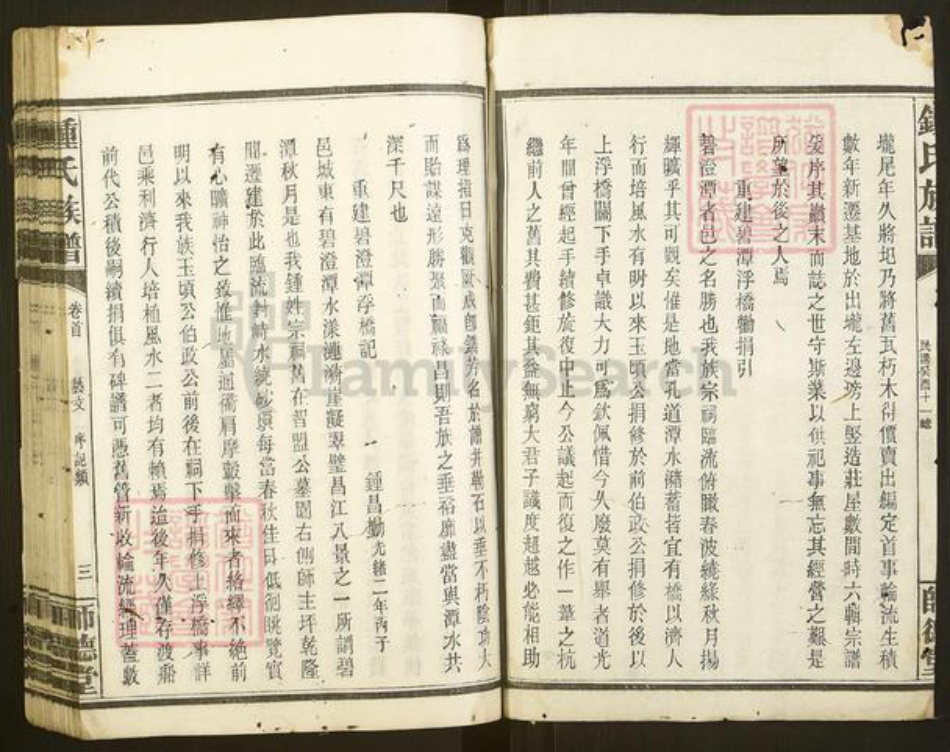 壠尾年久將圮乃將舊瓦朽木得價賣出編定首事輪流生積
數年新遷基地於出壠左邊塝上竪造莊屋數間時六輯宗譜
爰序其巔末而誌之世守斯業以供祀事無忘其經營之艱是
所望於後之人焉
重建碧潭浮橋勸捐引
碧澄潭者邑之名勝也我族宗祠臨流俯瞰春波繞綠秋月揚
輝曠乎其可觀矣惟是地當孔道潭水瀦蓄皆宜有橋以濟人
行而培風水有明以來玉頃公捐修於前伯政公捐修於後以
上浮橋關下手卓識大力可為欽佩惜今久廢莫有舉者道光
年間曾經起手續修旋復中止今公議起而復之作一葦之杭
繼前人之舊其費甚鉅其益無窮大君子議度超越必能相助
為理指日克觀厥成卽錄芳名於譜并勒石以垂不朽陰功大
而貽謀遠形勝聚而福祿昌則吾族之垂裕靡盡當與潭水共
深千尺也
重建碧澄潭浮橋記
鍾昌勳光緒二年丙子
邑城東有碧澄潭水漾漣漪崖凝翠壁昌江八景之一所謂碧
潭秋月是也我鍾姓宗祠舊在習盟公墓園右側師主坪乾隆
間遷建於此臨流對峙水繞砂環每當春秋佳日低徊眺覽實
有心曠神怡之致惟地屬通衢肩摩轂擊而來者絡繹不絕前
明以來我族玉頃公伯政公前後在祠下手捐修上浮橋事詳
邑乘利濟行人培植風水二者均有賴焉迨後年久僅存渡船
前代公積後嗣續捐俱有碑譜可憑舊管新收輪流經理蓋數
鍾氏族譜
卷首
藝文
序記類
三
師德堂
FamilySearch